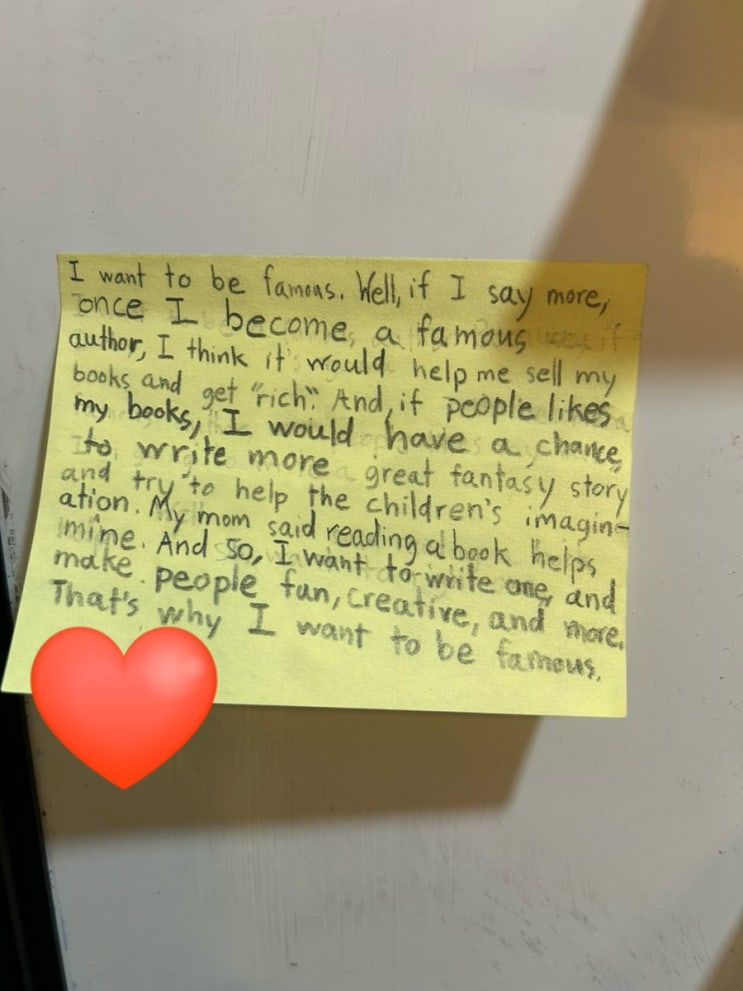 I want to be famous. Well, if I say more,
once I become a famous
author, I think it would help me sell my
books and get "rich". And, if people likes
my books, I would have a chance,
to write more great fantasy story
and try to help the children's imagin-
ation. My mom said reading a book helps
mine. And so, I want to write one, and
make people fun, creative, and more.
That's why I want to be famous.